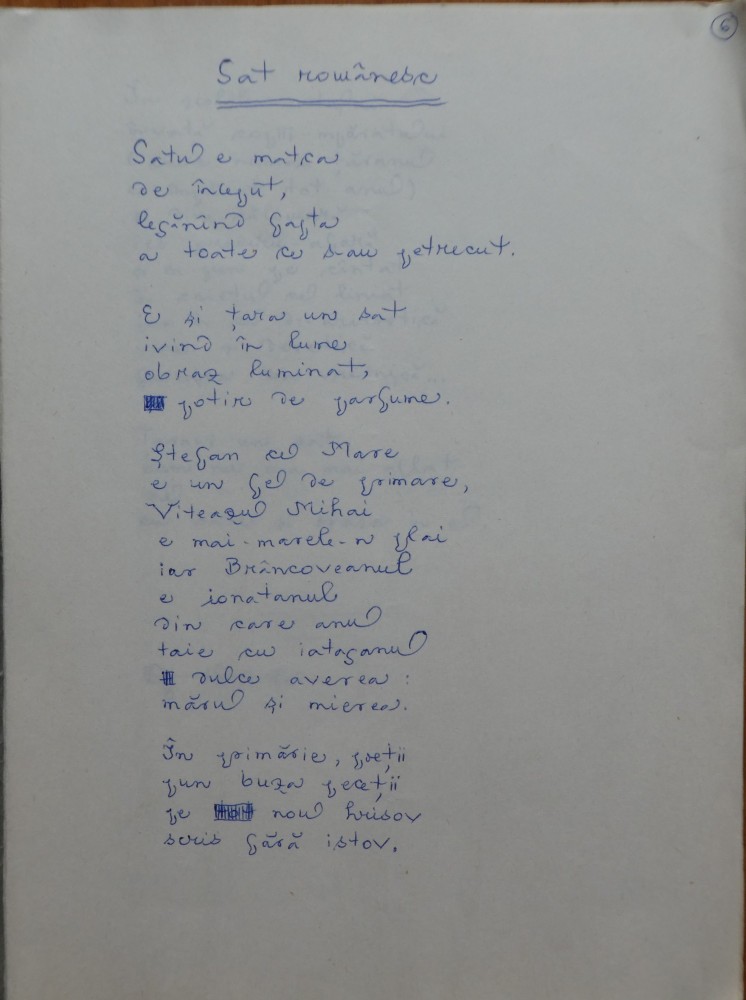 6
Sat românesc
Satul e matca
de început,
legănînd fapta
a toate ce s-au petrecut.
E și țara un sat
ivind în lume
obraz luminat,
potir de parfume.
Ștefan cel Mare
e un fel de primare,
Viteazul Mihai
e mai-marele-n plai
iar Brâncoveanul
e ionatanul
din care anul
taie cu iataganul
dulce averea:
mărul și mierea.
În primărie, poeții
pun buza peceții
pe nou hrisov
scris fără istov.